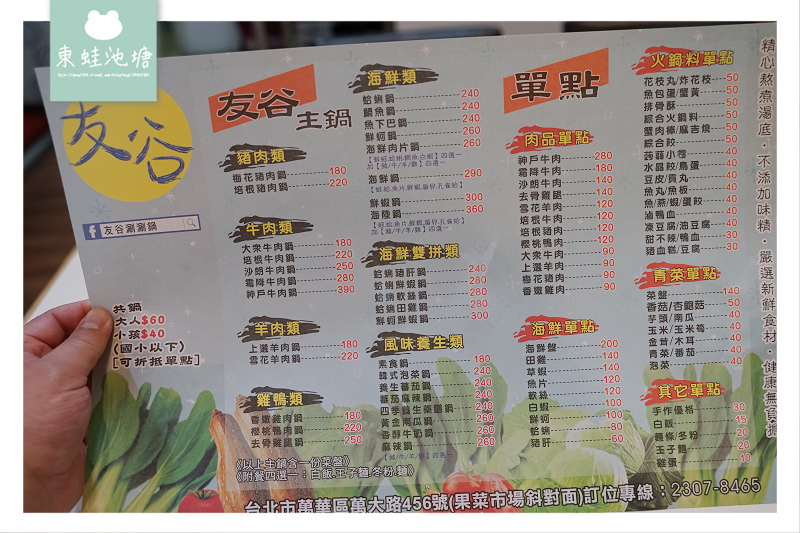 東蛙池塘
友谷
友谷涮涮鍋
共鍋
大人$60
小孩$40
(國小以下)
【可折抵單點】
友谷主鍋
豬肉類
梅花豬肉鍋 180
培根豬肉鍋 220
牛肉類
大眾牛肉鍋 180
培根牛肉鍋 220
沙朗牛肉鍋 250
霜降牛肉鍋 280
神戶牛肉鍋 390
羊肉類
上選羊肉鍋 180
雪花羊肉鍋 220
雞鴨類
香嫩雞肉鍋 180
櫻桃鴨肉鍋 220
去骨雞腿鍋 250
《以上主鍋含一份菜盤》
《附餐四選一：白飯.王子麵.冬粉.麵》
海鮮類
蛤蜊鍋 240
鯛魚鍋 240
魚下巴鍋 240
鮮蚵鍋 260
海鮮肉片鍋 260
海鮮鍋 290
鮮蝦鍋 300
海陸鍋 360
海鮮雙拼類
蛤蜊豬肝鍋 240
蛤蜊鮮蝦鍋 280
蛤蜊軟絲鍋 280
蛤蜊田雞鍋 280
鮮蚵鮮蝦鍋 300
風味養生類
素食鍋 180
韓式泡菜鍋 240
養生蕃茄鍋 240
蕃茄麻辣鍋 260
四季養生菜鍋 240
黃金南瓜鍋 260
香醇牛奶鍋 260
麻辣鍋 260
【豬/牛/羊/雞】四選一
單點
肉品單點
神戶牛肉 280
霜降牛肉 180
沙朗牛肉 140
去骨雞腿 140
雪花羊肉 120
培根牛肉 120
培根豬肉 120
櫻桃鴨肉 120
大眾牛肉 90
上選羊肉 90
梅花豬肉 90
香嫩雞肉 90
海鮮單點
海鮮盤 200
田雞 140
草蝦 140
魚片 120
軟絲 120
白蝦 100
鮮蚵 100
蛤蜊 80
豬肝 60
火鍋料單點
花枝丸/炸花枝 50
魚包蛋/蟹黃 50
排骨酥 50
綜合火鍋料 50
蟹肉棒/麻吉燒 50
綜合餃 50
蒟蒻小卷 40
水晶餃/鳥蛋 40
豆皮/貢丸 40
魚丸/魚板 40
魚/燕/蝦/蛋餃 40
滷鴨血 40
凍豆腐/油豆腐 40
甜不辣/鴨血 30
豬血糕/豆腐 30
青菜單點
菜盤 140
香菇/杏鮑菇 50
芋頭/南瓜 40
玉米/玉米筍 40
金茸/木耳 40
青菜/番茄 40
泡菜 40
其它單點
手作優格 30
白飯 15
麵條/冬粉 20
王子麵 20
雞蛋 10
精心熬煮湯底・不添加味精・嚴選新鮮食材・健康無負擔
台北市萬華區萬大路456號(果菜市場斜對面)訂位專線：2307-8465